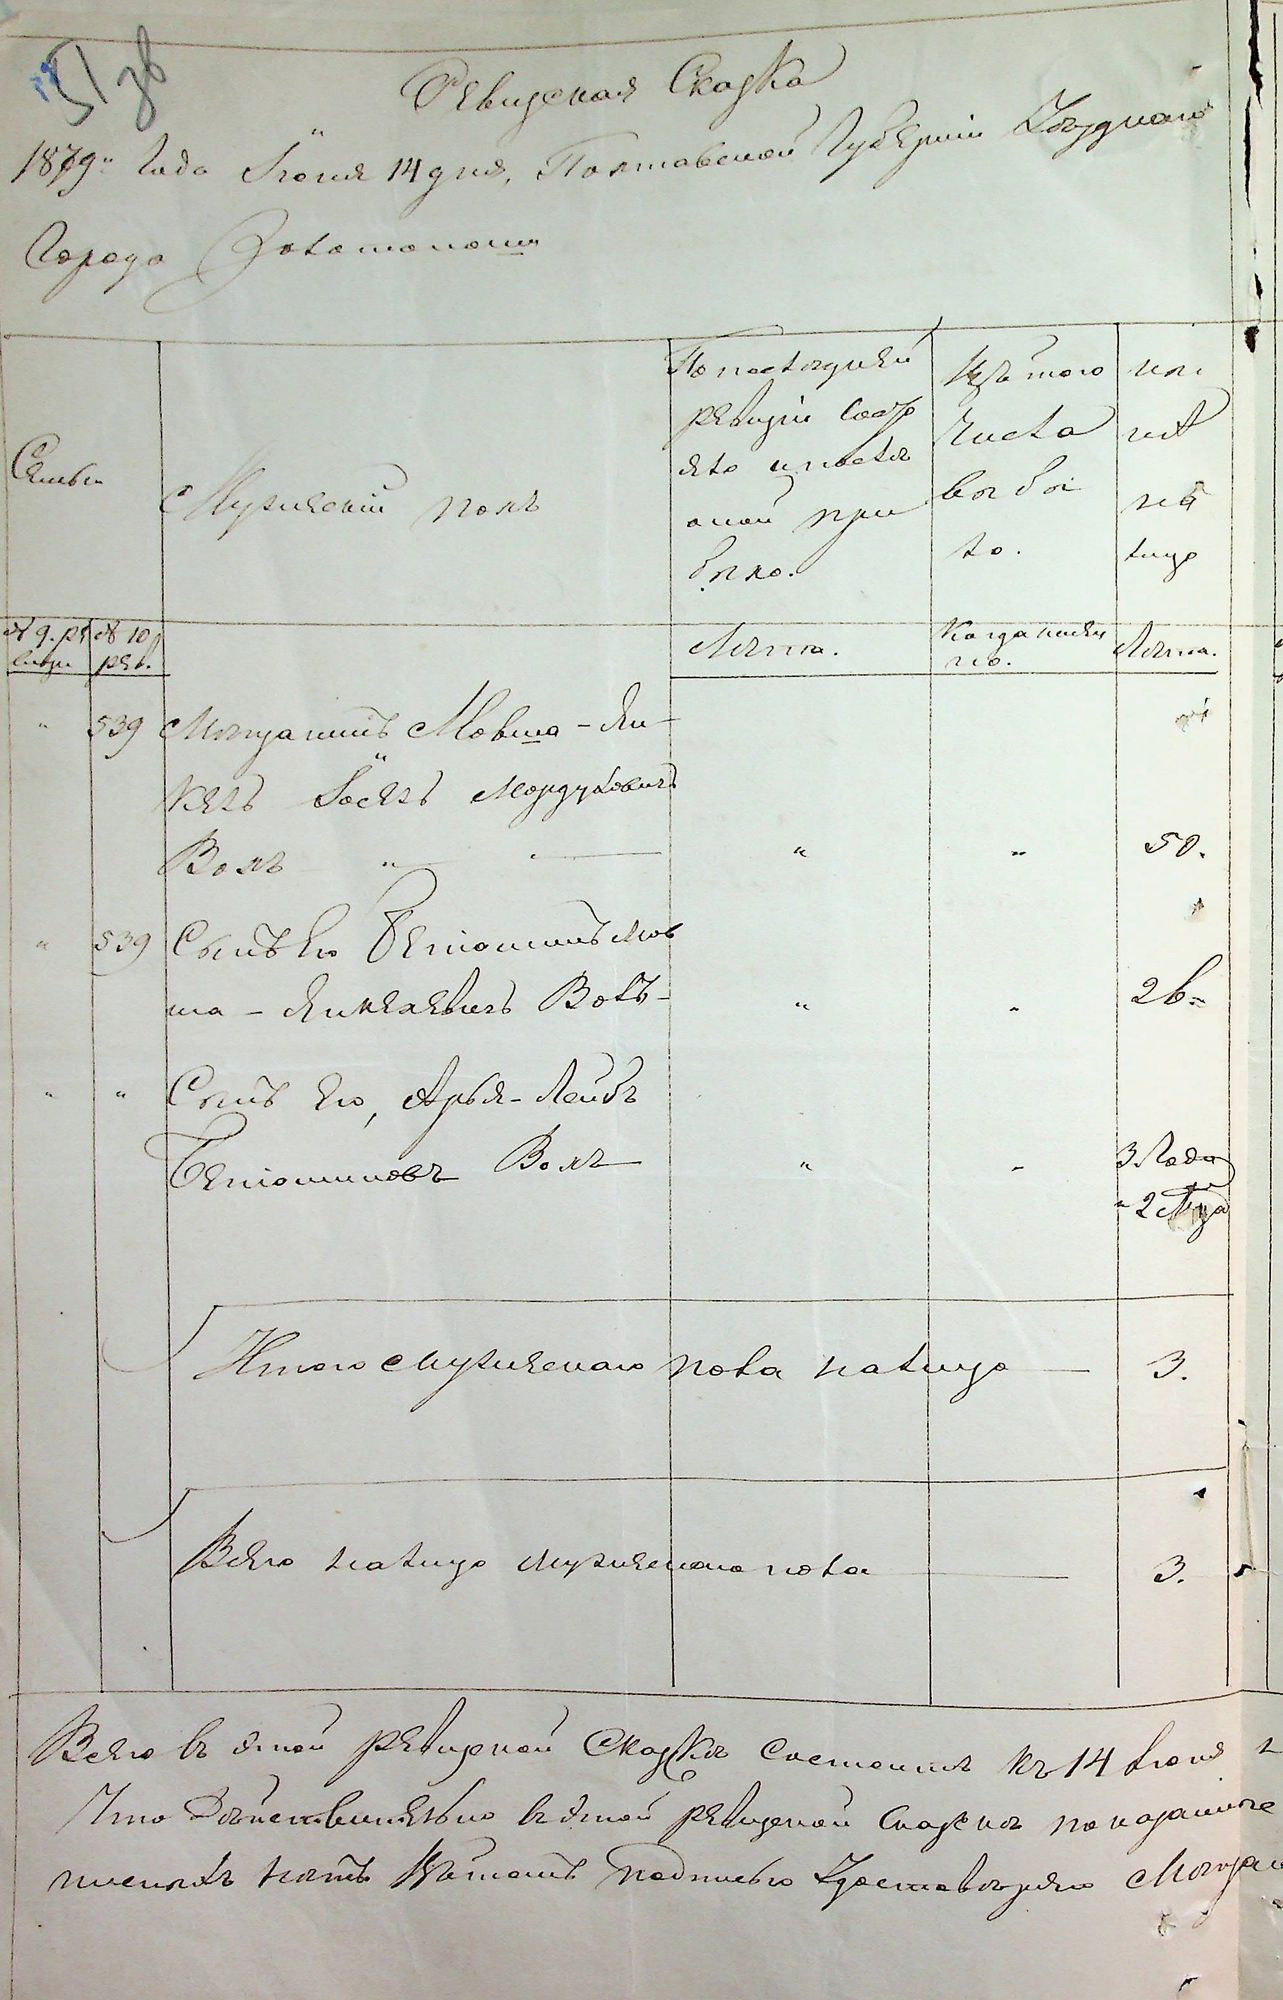 51 зв
Ревизская Сказка
1879 года Іюня 14 дня, Полтавской Губерніи Уѣзднаго
Города Золотоноши
Семьи
Мужескій полъ
По послѣдней
ревизіи состо
яло и послѣ
оной при
было.
Изъ того
числа
выбы
ло.
ны
нѣ
на
лицо
№ 9. ре
визіи
№ 10
рев.
Лѣта.
Когда именно.
Лѣта.
" 539 Мѣщанинъ Мовша - Ян-
кель Іосель Мордуховичъ
Волъ " " " 50.
" 539 Сынъ Его Беніоминъ Мов
ша - Янкелевичъ Волъ - " " 26
" " Сынъ Его, Арья - Лейбъ
Беніоминовъ Волъ " " 3 Года
" 2 Мца
Итого Мужескаго пола налицо 3.
Всего налицо мужескаго пола 3.
Всего въ этой ревизской Сказкѣ Состоитъ къ 14 Іюня
Что Дѣйствительно въ этой ревизской Сказкѣ показанные
подписью Удостовѣряю